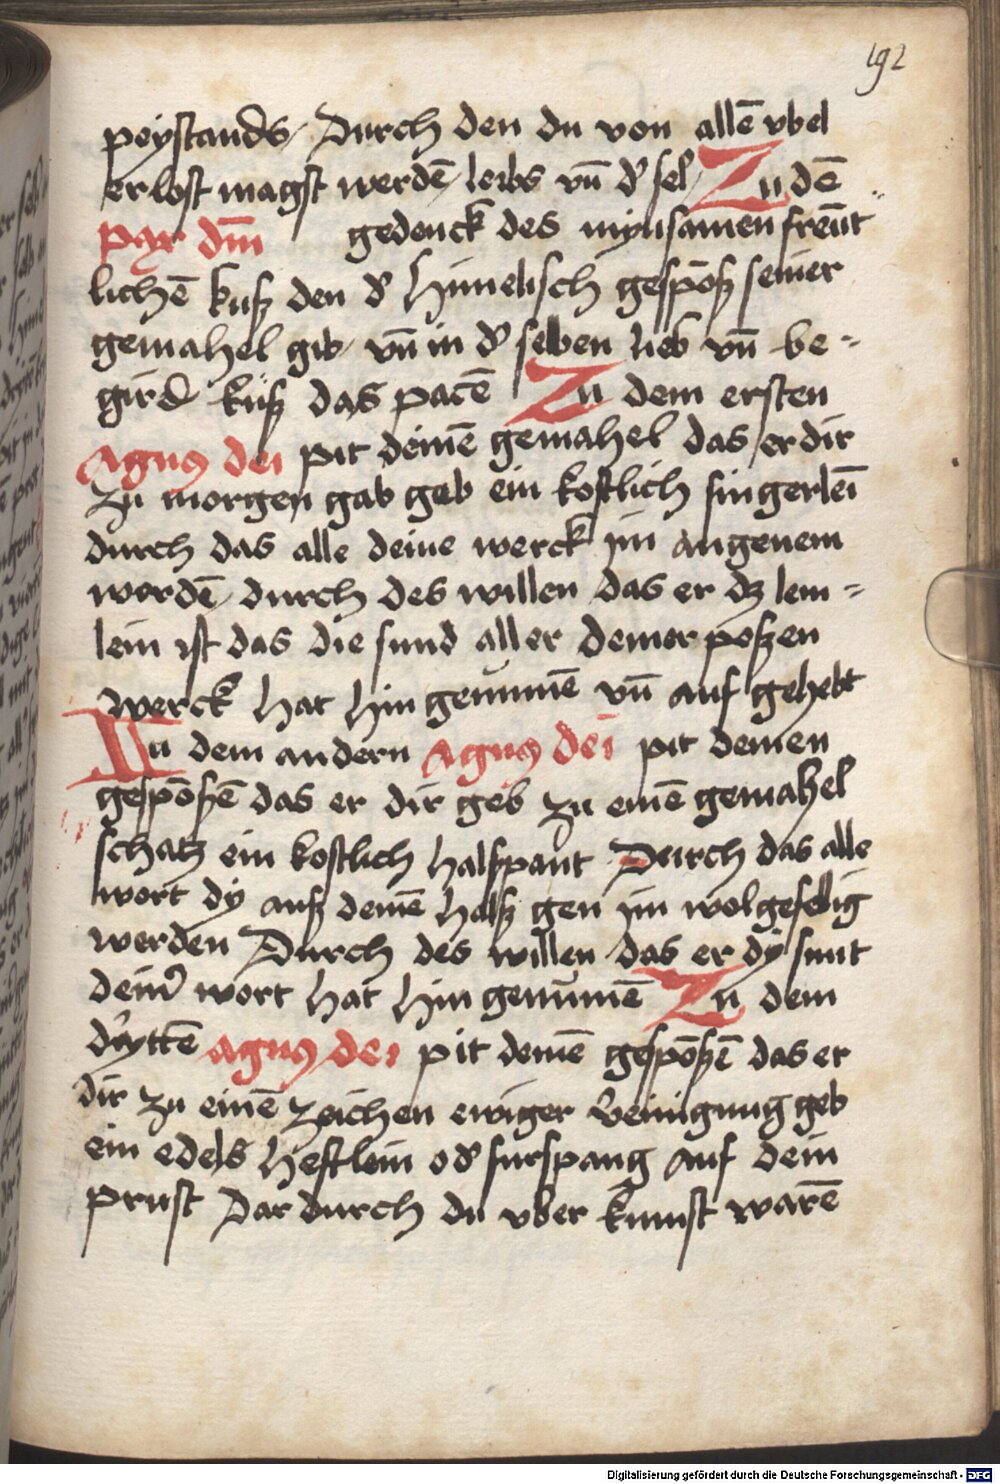 192
peystands / Durch den du von allē vbel
erlost magst werdē / leibs vn̄ d' sel / Zu dē
pax dn̄i gedenck des mynsamen freūt
lichē kuſz den d' himelisch gespōsz seiner
gemahel gib / vn̄ in d' selben lieb vn̄ be-
gird küsz das pacē Zu dem ersten
Agnus dei pit deinē gemahel das er dir
zu morgen gab geb ein kostlich fingerleī
durch das alle deine werck im angenem
werdē / durch des willen das er dz lem-
lein ist das die sund aller deiner poszen
werck hat hin genumē vn̄ auf gehebt
Zu dem andern Agnus dei pit deinen
gespōszē das er dir geb zu einē gemahel
schatz ein kostlich halspant Durch das alle
wort dy ausz deinē halsz gen im wolgefelig
werden Durch des willen das er dy sunt
dein' wort hat hin genumē Zu dem
drytē agnus dei pit deinē gespōszē das er
dir zu einē zeichen ewiger veinigung geb
ein edels heftlein od' furspang auf dein
prust Dar durch du vber kumst warē
Digitalisierung gefördert durch die Deutsche Forschungsgemeinschaft - DFG